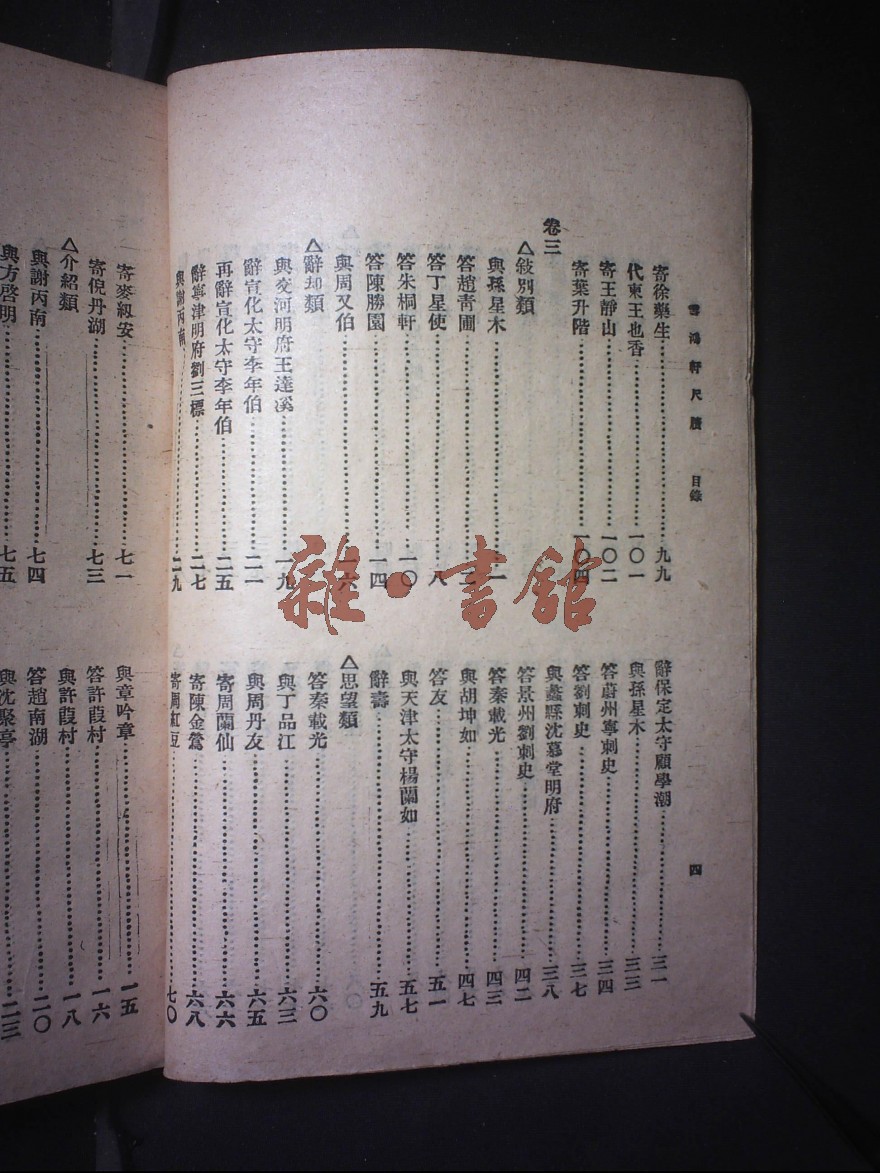 雪鴻軒尺牘 目錄 四
寄徐藥生 九九
代柬王也香 一〇一
寄王靜山 一〇二
寄葉升階 一〇四
卷三
△敍別類
與孫星木 一
答趙靑圃
答丁星使 八
答朱桐軒 一〇
答陳勝園 一四
與周又伯 一六
△辭却類
與交河明府王達溪 一九
辭宣化太守李年伯 二一
再辭宣化太守李年伯 二五
辭寧津明府劉三標 二七
與謝丙南 二九
辭保定太守顧學潮 三一
與孫星木 三三
答蔚州寧刺史 三四
答劉刺史 三七
與蠡縣沈慕堂明府 三八
答景州劉刺史 四二
答秦載光 四三
與胡坤如 四七
答友 五一
與天津太守楊蘭如 五七
辭壽 五九
△思望類
答秦載光 六〇
與丁品江 六三
與周丹友 六五
寄周蘭仙 六六
寄陳金鶯 六八
寄周紅豆 七〇
寄麥紉安 七一
寄倪丹湖 七三
△介紹類
與謝丙南 七四
與方啓明 七五
與章吟章 一五
答許葭村 一六
與許葭村 一八
答趙南湖 二〇
與沈聚亭 二三
雜·書館